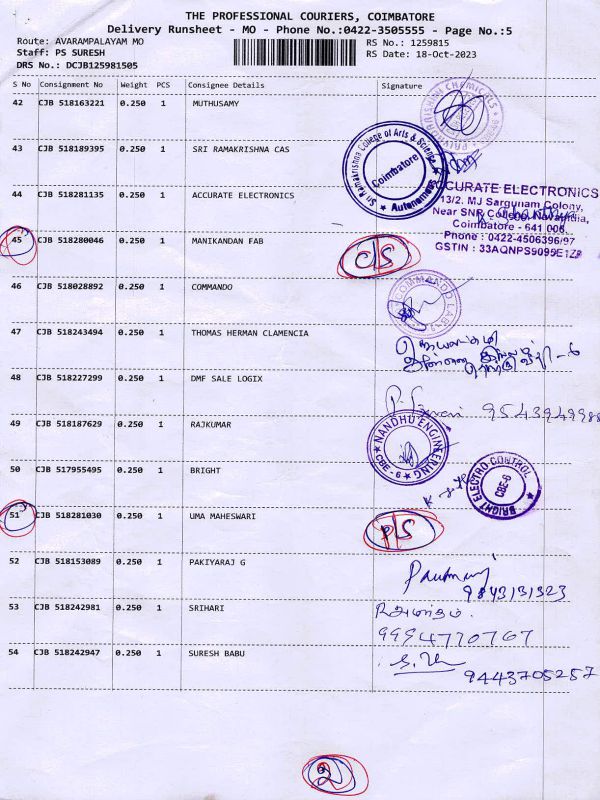 THE PROFESSIONAL COURIERS, COIMBATORE
Delivery Runsheet - MO - Phone No.:0422-3505555 - Page No.:5
Route: AVARAMPALAYAM MO
RS No.: 1259815
Staff: PS SURESH
RS Date: 18-Oct-2023
DRS No.: DCJB125981505
S No Consignment No Weight PCS Consignee Details Signature
42 CJB 518163221 0.250 1 MUTHUSAMY
43 CJB 518189395 0.250 1 SRI RAMAKRISHNA CAS
Sri Ramakrishna College of Arts & Science
Coimbatore
Autonomous
44 CJB 518281135 0.250 1 ACCURATE ELECTRONICS
ACCURATE ELECTRONICS
13/2. MJ Sargunam Colony,
Near SNR College, Navaindia,
Coimbatore - 641 006
Phone : 0422-4506396/97
GSTIN : 33AQNPS9099E1Z8
45 CJB 518280046 0.250 1 MANIKANDAN FAB
C/S
46 CJB 518028892 0.250 1 COMMANDO
COMMANDO
47 CJB 518243494 0.250 1 THOMAS HERMAN CLAMENCIA
48 CJB 518227299 0.250 1 DMF SALE LOGIX
9543949988
49 CJB 518187629 0.250 1 RAJKUMAR
NANDHU ENGINEERING
CBE - 6
50 CJB 517955495 0.250 1 BRIGHT
BRIGHT ELECTRO CONTROL
CBE-6
51 CJB 518281030 0.250 1 UMA MAHESWARI
P/S
52 CJB 518153089 0.250 1 PAKIYARAJ G
9843131323
53 CJB 518242981 0.250 1 SRIHARI
9994770767
54 CJB 518242947 0.250 1 SURESH BABU
9443705257
2